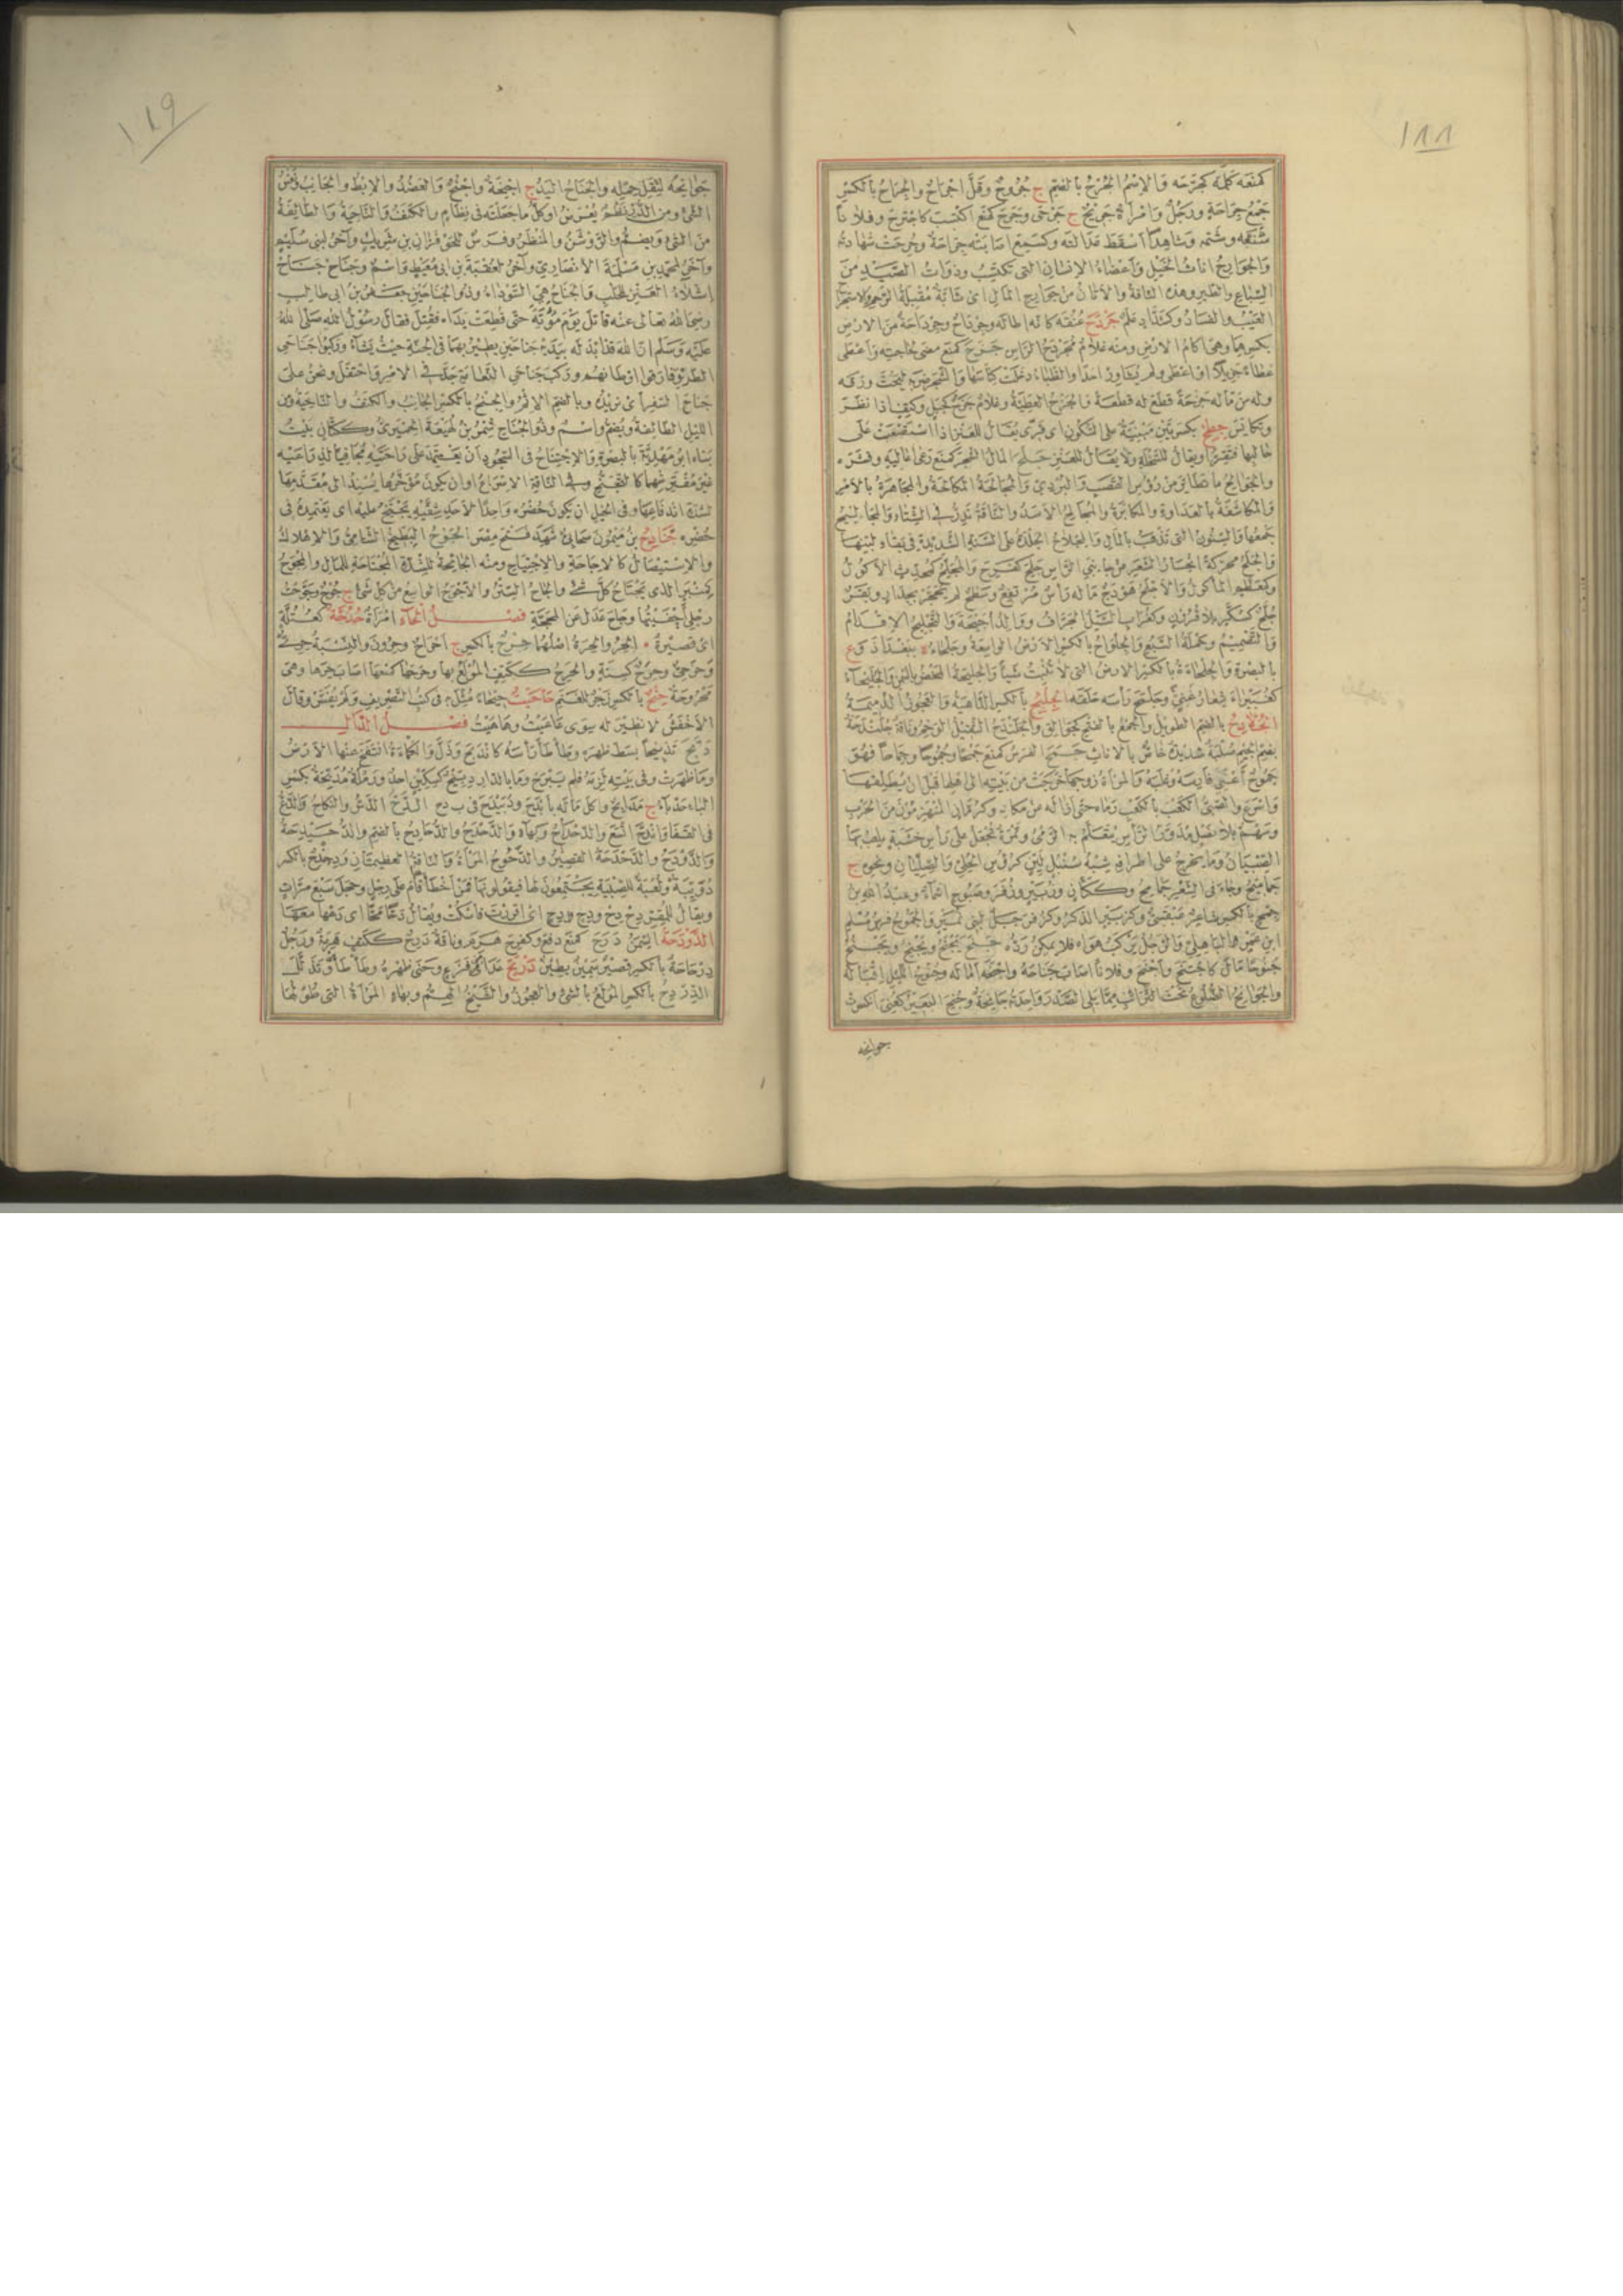 ١٨٨
كمنعه كلمه كجرّحه والاسم الجرح بالضم ج جروح وقلّ اجراح والجراح بالكسر
جمع جراحة ورجل وامرأة جريح ج جرحى وجرح كمنع اكتسب كاجترح وفلانا
سبّه وشتمه وشاهدا اسقط عدالته وكسمع اصابته جراحة وجرحت شهادته
والجوارح اناث الخيل واعضاء الانسان التى تكتسب وذوات الصيد من
السباع والطير وهذه الناقة والاتان من جوارح المال اى شابة مقبلة الرحم والاستجراح
العيب والفساد وكشداد علم جردح عنقه كانه اطاله وجرداح وجرداحة من الارض
بكسرهما وهى اكام الارض ومنه غلام مجردح الراس جزح كمنع مضى لحاجته واعطى
عطاء جزيلا او اعطى ولم يشاور احدا والظباء دخلت كناسها والشجر ضربه ليحتّ ورقه
وله من ماله جزحة قطع له قطعة والجزح العطية وغلام جزح كجبل وكتف اذا نظر
وتكايس جطح بكسرتين مبنية على السكون اى قرّى يقال للعنز اذا استصعبت على
حالبها فتقر او يقال للسخلة ولا يقال للعنز جلح المال الشجر كمنع رعى اعاليه وقشره
والجوالح ما تطاير من رؤس القصب والبردى والمجالحة المكالحة والمجاهرة بالامر
والمكاشفة بالعداوة والمكابرة والمجالح الاسد والناقة تدرّ فى الشتاء والمجاليح
جمعها والسنون التى تذهب بالمال والمجلاح الجلدة على السنة الشديدة فى بقاء لبنها
والجلح محركة انحسار الشعر عن جانبى الراس جلح كفرح والمجلح كمحدث الاكول
وكمعظم المأكول والاجلح هودج ماله رأس مرتفع وسطح لم يحجز بجدار وبقر
جلح كسكر بلا قرون وكغراب السيل الجراف ووالد أحيحة والتجليح الاقدام
والتصميم وحملة السبع والجلواح بالكسر الارض الواسعة وجلحاء ة ببغداد وع
بالبصرة والجلحاءة بالكسر الارض التى لا تنبت شيأ والجليحة المحض بالتمر والجليحاء
كغبيراء شعار غنىّ وجلمح رأسه حلقه الجلبح بالكسر الداهية والعجوز الدميمة
الجلادح بالضم الطويل والجمع بالفتح كجوالق والجلندح الثقيل الوخم وناقة جلندحة
بضم الجيم صلبة شديدة خاص بالاناث جمح الفرس كمنع جمحا وجموحا وجماحا وهو
جموح اعتزّ فارسه وغلبه والمرأة زوجها خرجت من بيته الى اهلها قبل ان يطلقها
واسرع والصبىّ الكعب بالكعب رماه حتى ازاله عن مكانه وكرمان المنهزمون من الحرب
وسهم بلا نصل مدوّر الرأس يتعلم به الرمى وتمرة تجعل على رأس خشبة يلعب بها
الصبيان وما يخرج على اطرافه شبه سنبل لين كرؤس الحلى والصليان ونحوه ج
جماميح وجاء فى الشعر جمامح وككتان وزبير وزفر وصبوح اسماء وعبد الله بن
جمح بالكسر شاعر عبقسى وكزبير الذكر وكزفر جبل لبنى نمير والجموح فرس مسلم
ابن عمرو الباهلى والرجل يركب هواه فلا يمكن ردّه جنح يجنح ويجنح ويجنح
جنوحا مال كاجتنح واجنح وفلانا اصاب جناحه واجنحه اماله وجنوح الليل اقباله
والجوانح الضلوع تحت الترائب مما يلى الصدر واحدته جانحة وجنح البعير كعنى انكسرت
جوانحه
١٨٩
جوانحه لثقل حمله والجناح اليد ج اجنحة واجنح والعضد والابط والجانب ونفس
الشئ ومن الدر نظم يعرّض او كل ما جعلته فى نظام والكنف والناحية والطائفة
من الشئ ويضم والروشن والمنظر وفرس للحوفزان بن شريك وآخر لبنى سليم
وآخر لمحمد بن مسلمة الانصارى وآخر لعقبة بن ابى معيط واسم وجناح جناح
اشلاء العنز للحلب والجناح هى السوداء وذو الجناحين جعفر بن ابى طالب
رضى الله تعالى عنه قاتل يوم مؤتة حتى قطعت يداه فقتل فقال رسول الله صلى الله
عليه وسلم ان الله قد ابدله بيديه جناحين يطير بهما فى الجنة حيث يشاء وركبوا جناحى
الطريق فارقوا اوطانهم وركب جناحى النعامة جدّ فى الامر واحتفل ونحن على
جناح السفر اى نريده وبالضم الاثم والجنح بالكسر الجانب والكنف والناحية ومن
الليل الطائفة ويضم واسم وذو الجناح شمر بن لهيعة الحميرى وككتان بيت
بناه ابو مهدية بالبصرة والاجتناح فى السجود ان يعتمد على راحتيه مجافيا لذراعيه
غير مفترشهما كالتجنح وفى الناقة الاسراع او ان يكون مؤخرها يسند الى مقدمها
لشدة اندفاعها وفى الخيل ان يكون حضره واحدا لاحد شقيه يجتنح عليه اى يعتمده فى
حضره جنادح بن ميمون صحابى شهد فتح مصر الجوح البطيخ الشامى والاهلاك
والاستيصال كالاجاحة والاجتياح ومنه الجائحة للشدة المجتاحة للمال والمجوح
كمنبر الذى يجتاح كل شئ والجاح الستر والاجوح الواسع من كل شئ ج جوح وجوّحت
رجلى احفيتها وجاح عدل عن المحجة فصل الحاء امرأة حدحة كعتلّة
اى قصيرة ٭ الحر والحرة اصلهما حرح بالكسر ج احراح وحرون والنسبة حرى
وحرحى وحرح كستة والحرح ككتف المولع بها وحرحها كمنعها اصاب حرها وهى
محروحة حنح بالكسر زجر للغنم حاحيت حيحاء مثل به فى كتب التصريف ولم يفسر وقال
الاخفش لا نظير له سوى عاعيت وهاهيت فصل الدال
دبّح تدبيحا بسط ظهره وطأطأ رأسه كاندبح وذلّ والكمأة انتفخ عنها الارض
وما ظهرت وفى بيته لزمه فلم يبرح وما بالدار دبيح كسكين احد ورملة مدبّحة بكسر
الباء حدباء ج مدابح واكل ماله بأبدح ودبيدح فى ب د ح الدحّ الدسّ والنكاح والدع
فى القفا واندحّ اتسع والدحداح وبهاء والدحدح والدحادح بالضم والدحيدحة
والدودح والدحدحة القصير والدحوح المرأة والناقة العظيمتان ودحندح بالكسر
دويبة ولعبة للصبية يجتمعون لها فيقولونها فمن اخطأ قام على رجل وحجل سبع مرات
ويقال للمقرّ دح دح ودح دح اى اقررت فاسكت ويقال دحّا محّا اى دعها معها
الدودحة السمن درح كمنع دفع وكفرح هرم وناقة درح ككتف هرمة ورجل
درحاية بالكسر قصير سمين بطين دربح عدا من فزع وحنى ظهره وطأطأ وتذلل
الدردح بالكسر المولع بالشئ والعجوز والشيخ الهمّ وبهاء المرأة التى طولها